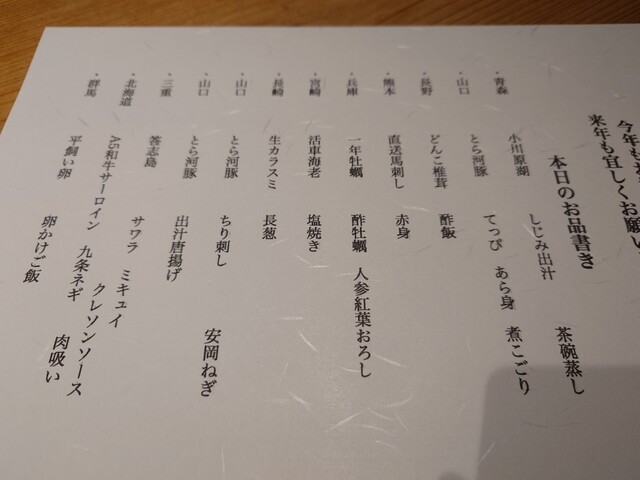 今年もお
来年も宜しくお願い
本日のお品書き
・青森 小川原湖 しじみ出汁 茶碗蒸し
・山口 とら河豚 てっぴ あら身 煮こごり
・長野 どんこ椎茸 酢飯
・熊本 直送馬刺し 赤身
・兵庫 一年牡蠣 酢牡蠣 人参紅葉おろし
・宮崎 活車海老 塩焼き
・長崎 生カラスミ 長葱
・山口 とら河豚 ちり刺し 安岡ねぎ
・山口 とら河豚 出汁唐揚げ
・三重 答志島 サワラ ミキュイ
・北海道 A5和牛サーロイン 九条ネギ クレソンソース
・群馬 平飼い卵 卵かけご飯 肉吸い